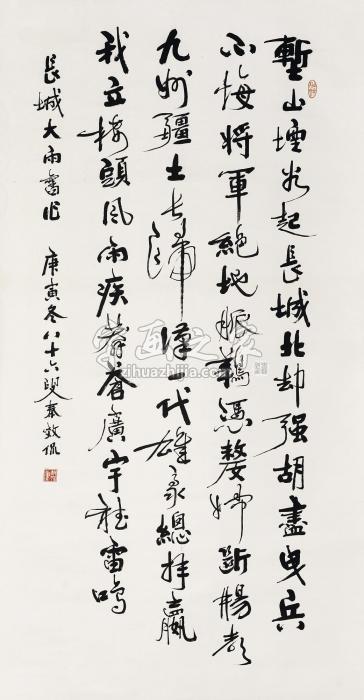 塹山堙谷起長城北却强胡盡曳兵
不悔將軍絕地脈憑嫠婦斷腸
九州疆土長歸漢一代雄豪總拜嬴
我立樓頭風雨疾莽蒼廣宇雷鳴
長城大雨舊作 庚寅冬八十六叟秦效侃
字画之家
zihuazhijia.com